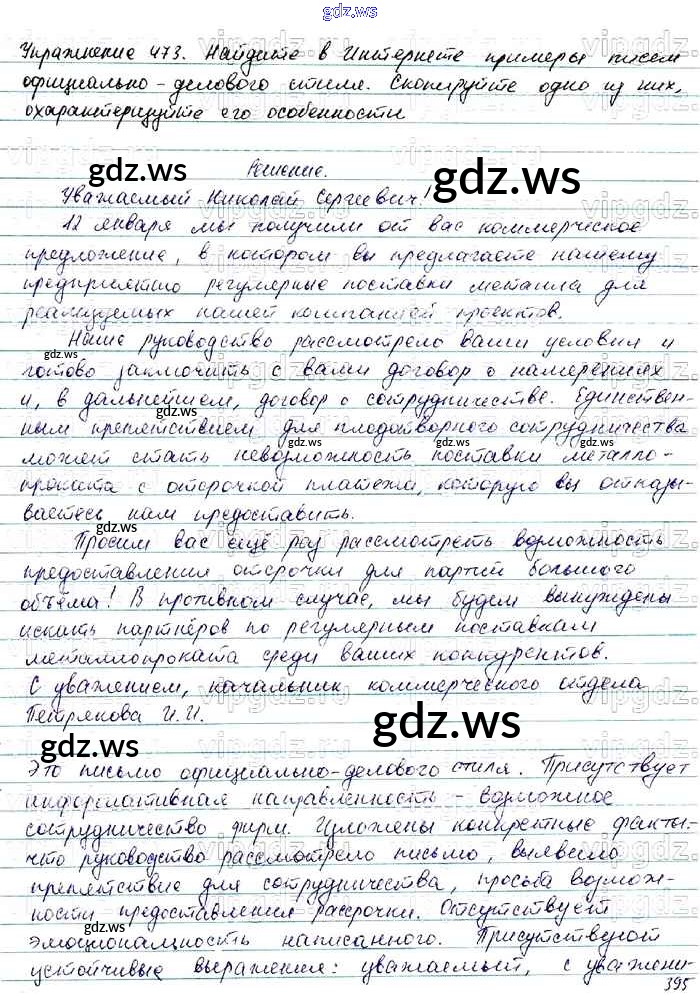 gdz.ws
Упражнение 473. Найдите в Интернете примеры писем
официально-делового стиля. Скопируйте одно из них,
охарактеризуйте его особенности
gdz.ws
gdz.ws
Решение.
Уважаемый Николай Сергеевич!
12 января мы получили от вас коммерческое
предложение, в котором вы предлагаете нашему
предприятию регулярные поставки металла для
реализуемых нашей компанией проектов.
Наше руководство рассмотрело ваши условия и
gdz.ws
готово заключить с вами договор о намерениях
и, в дальнейшем, договор о сотрудничестве. Единствен-
gdz.ws
ным препятствием для плодотворного сотрудничества
gdz.ws gdz.ws
может стать невозможность поставки металло-
проката с отсрочкой платежа, которую вы отказы-
ваетесь нам предоставить.
gdz.ws
Просим вас ещё раз рассмотреть возможность
предоставления отсрочки для партий большого
объёма! В противном случае, мы будем вынуждены
искать партнёров по регулярным поставкам
металлопроката среди ваших конкурентов.
С уважением, начальник коммерческого отдела
Петрякова И.И.
gdz.ws
gdz.ws
Это письмо официально-делового стиля. Присутствует
информативная направленность - возможное
сотрудничество фирм. Изложены конкретные факты-
что руководство рассмотрело письмо, выявило
препятствие для сотрудничества, просьба возмож-
ности предоставления рассрочки. Отсутствует
эмоциональность написанного. Присутствуют
устойчивые выражения: уважаемый, с уважени-
395